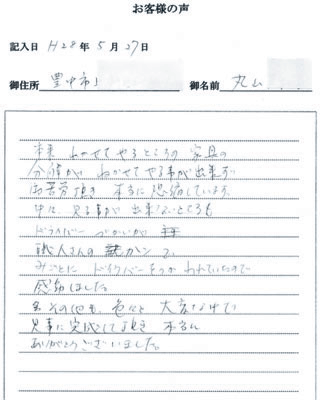 お客様の声
記入日 H28年5月27日
御住所 豊中市 御名前 丸山
本来 ねかせてやるところの 家具の
分譲が ねかせてやる事が出来ず
御苦労頂き 本当に感謝しています。
中に 見る事が 出来ないところも
ドライバー
職人さんの カン で
みごとに ドライバーをつかわれていたので
感動しました。
その他も 色々と 大変な中で
見事に完成して頂き 本当に
ありがとうございました。